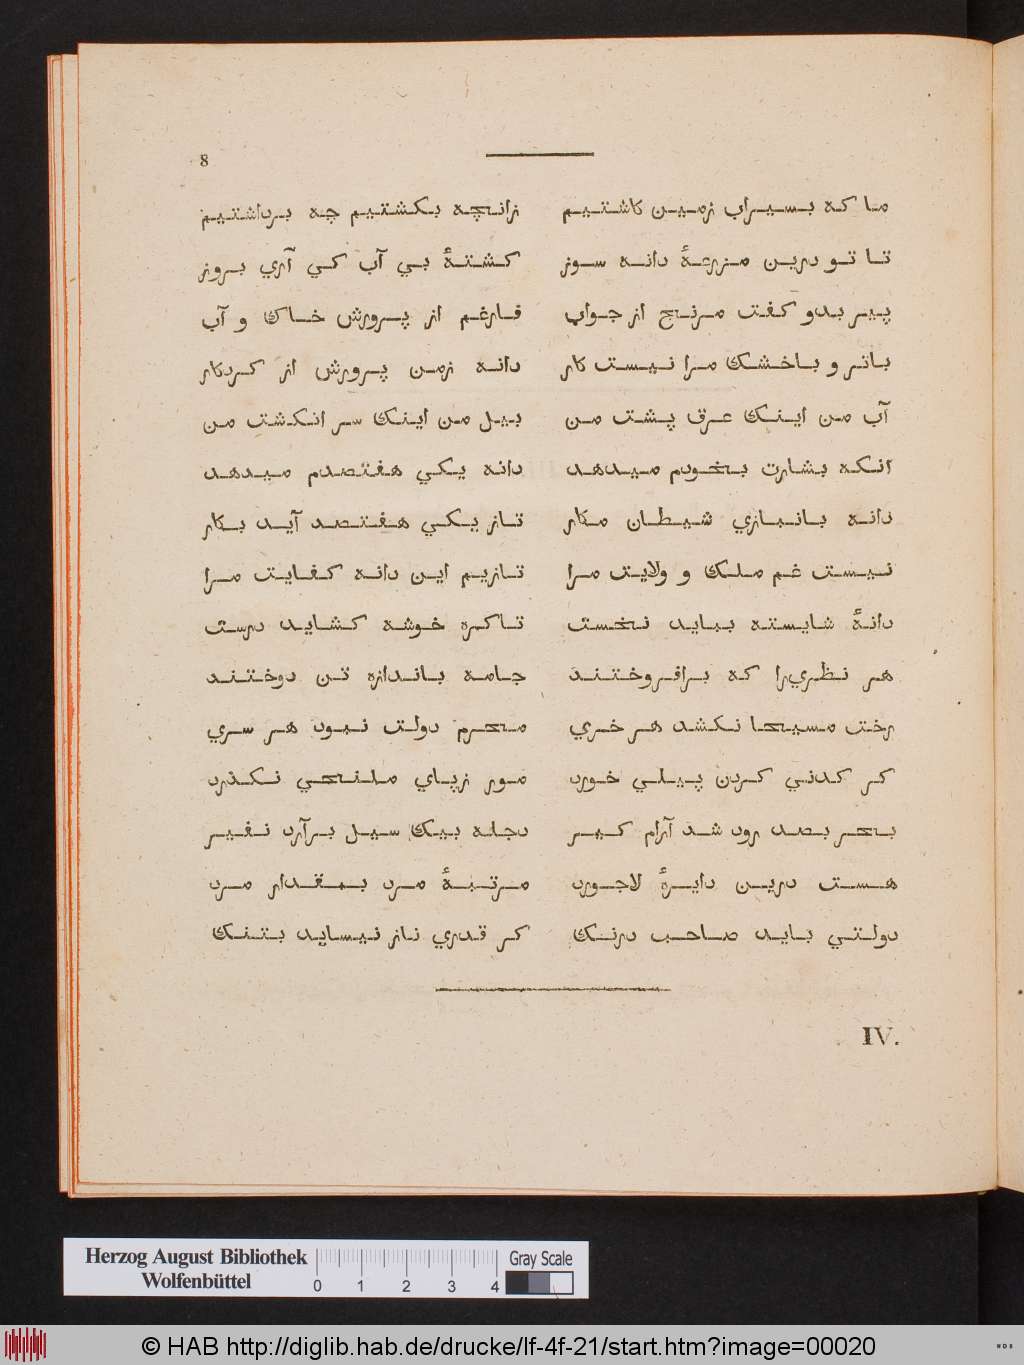 8
ما که بسیراب زمین کاشتیم زانچه بکشتیم چه برداشتیم
تا تو درین مزرعهٔ دانه سوز کشتهٔ بي آب کي آري بروز
پیر بدو کفت مرنج از جواب فارغم از پرورش خاک و آب
باتر و باخشک مرا نیست کار دانه زمن پرورش از کردکار
آب من اینک عرق پشت من بیل من اینک سر انکشت من
انکه بشارت بخودم میدهد دانه یکي هفتصدم میدهد
دانه بانبازي شیطان مکار تاز یکي هفتصد آید بکار
نیست غم ملک و ولایت مرا تازیم این دانه کفایت مرا
دانهٔ شایسته بباید نخست تاکره خوشه کشاید درست
هر نظري را که برافروختند جامه باندازه تن دوختند
رخت مسیحا نکشد هر خري محرم دولت نبود هر سري
کر کدني کردن پیلي خورد مور زپاي ملخي نکذرد
بحر بصد رود شد آرام کیر دجله بیک سیل برآرد نفیر
هست درین دایرهٔ لاجورد مرتبهٔ مرد بمقدار مرد
دولتي باید صاحب درنک کر قدري ناز نیساید بتنک
IV.
Herzog August Bibliothek
Wolfenbüttel
0 1 2 3 4
Gray Scale
© HAB http://diglib.hab.de/drucke/lf-4f-21/start.htm?image=00020